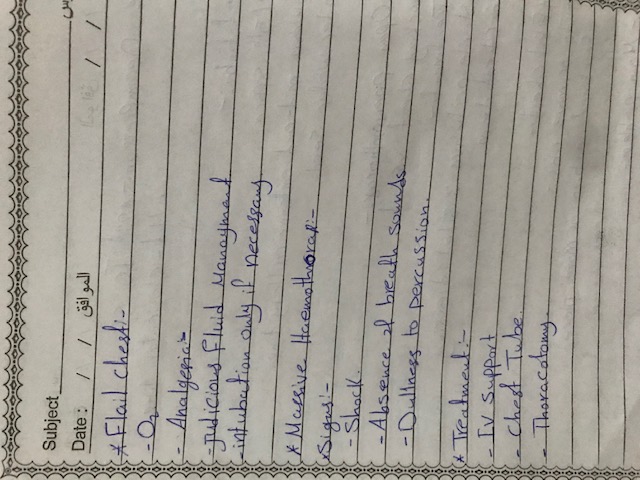 Subject
Date: / / الموافق / /
* Flail chest:-
- O2
- Analgesia:-
- Judicious Fluid Managment
- intubation only if necessary
* Massive Haemothorax:-
* Signs:-
- Shock.
- Absence of breath sounds
- Dullness to percussion.
* Treatment:-
- IV support
- Chest Tube.
- Thoracotomy